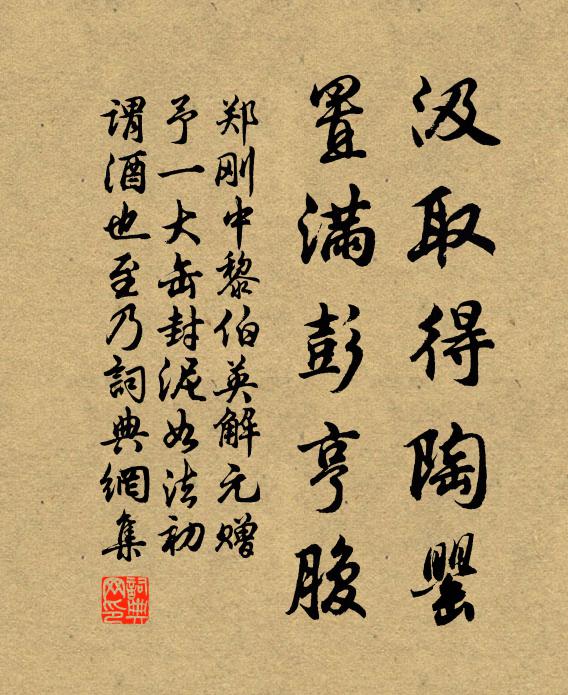 汲取得陶罂
置满彭亨腹
郑刚中黎伯英解元赠
予一大缶封泥如法初
谓酒也至乃詞典網集
詞典网印